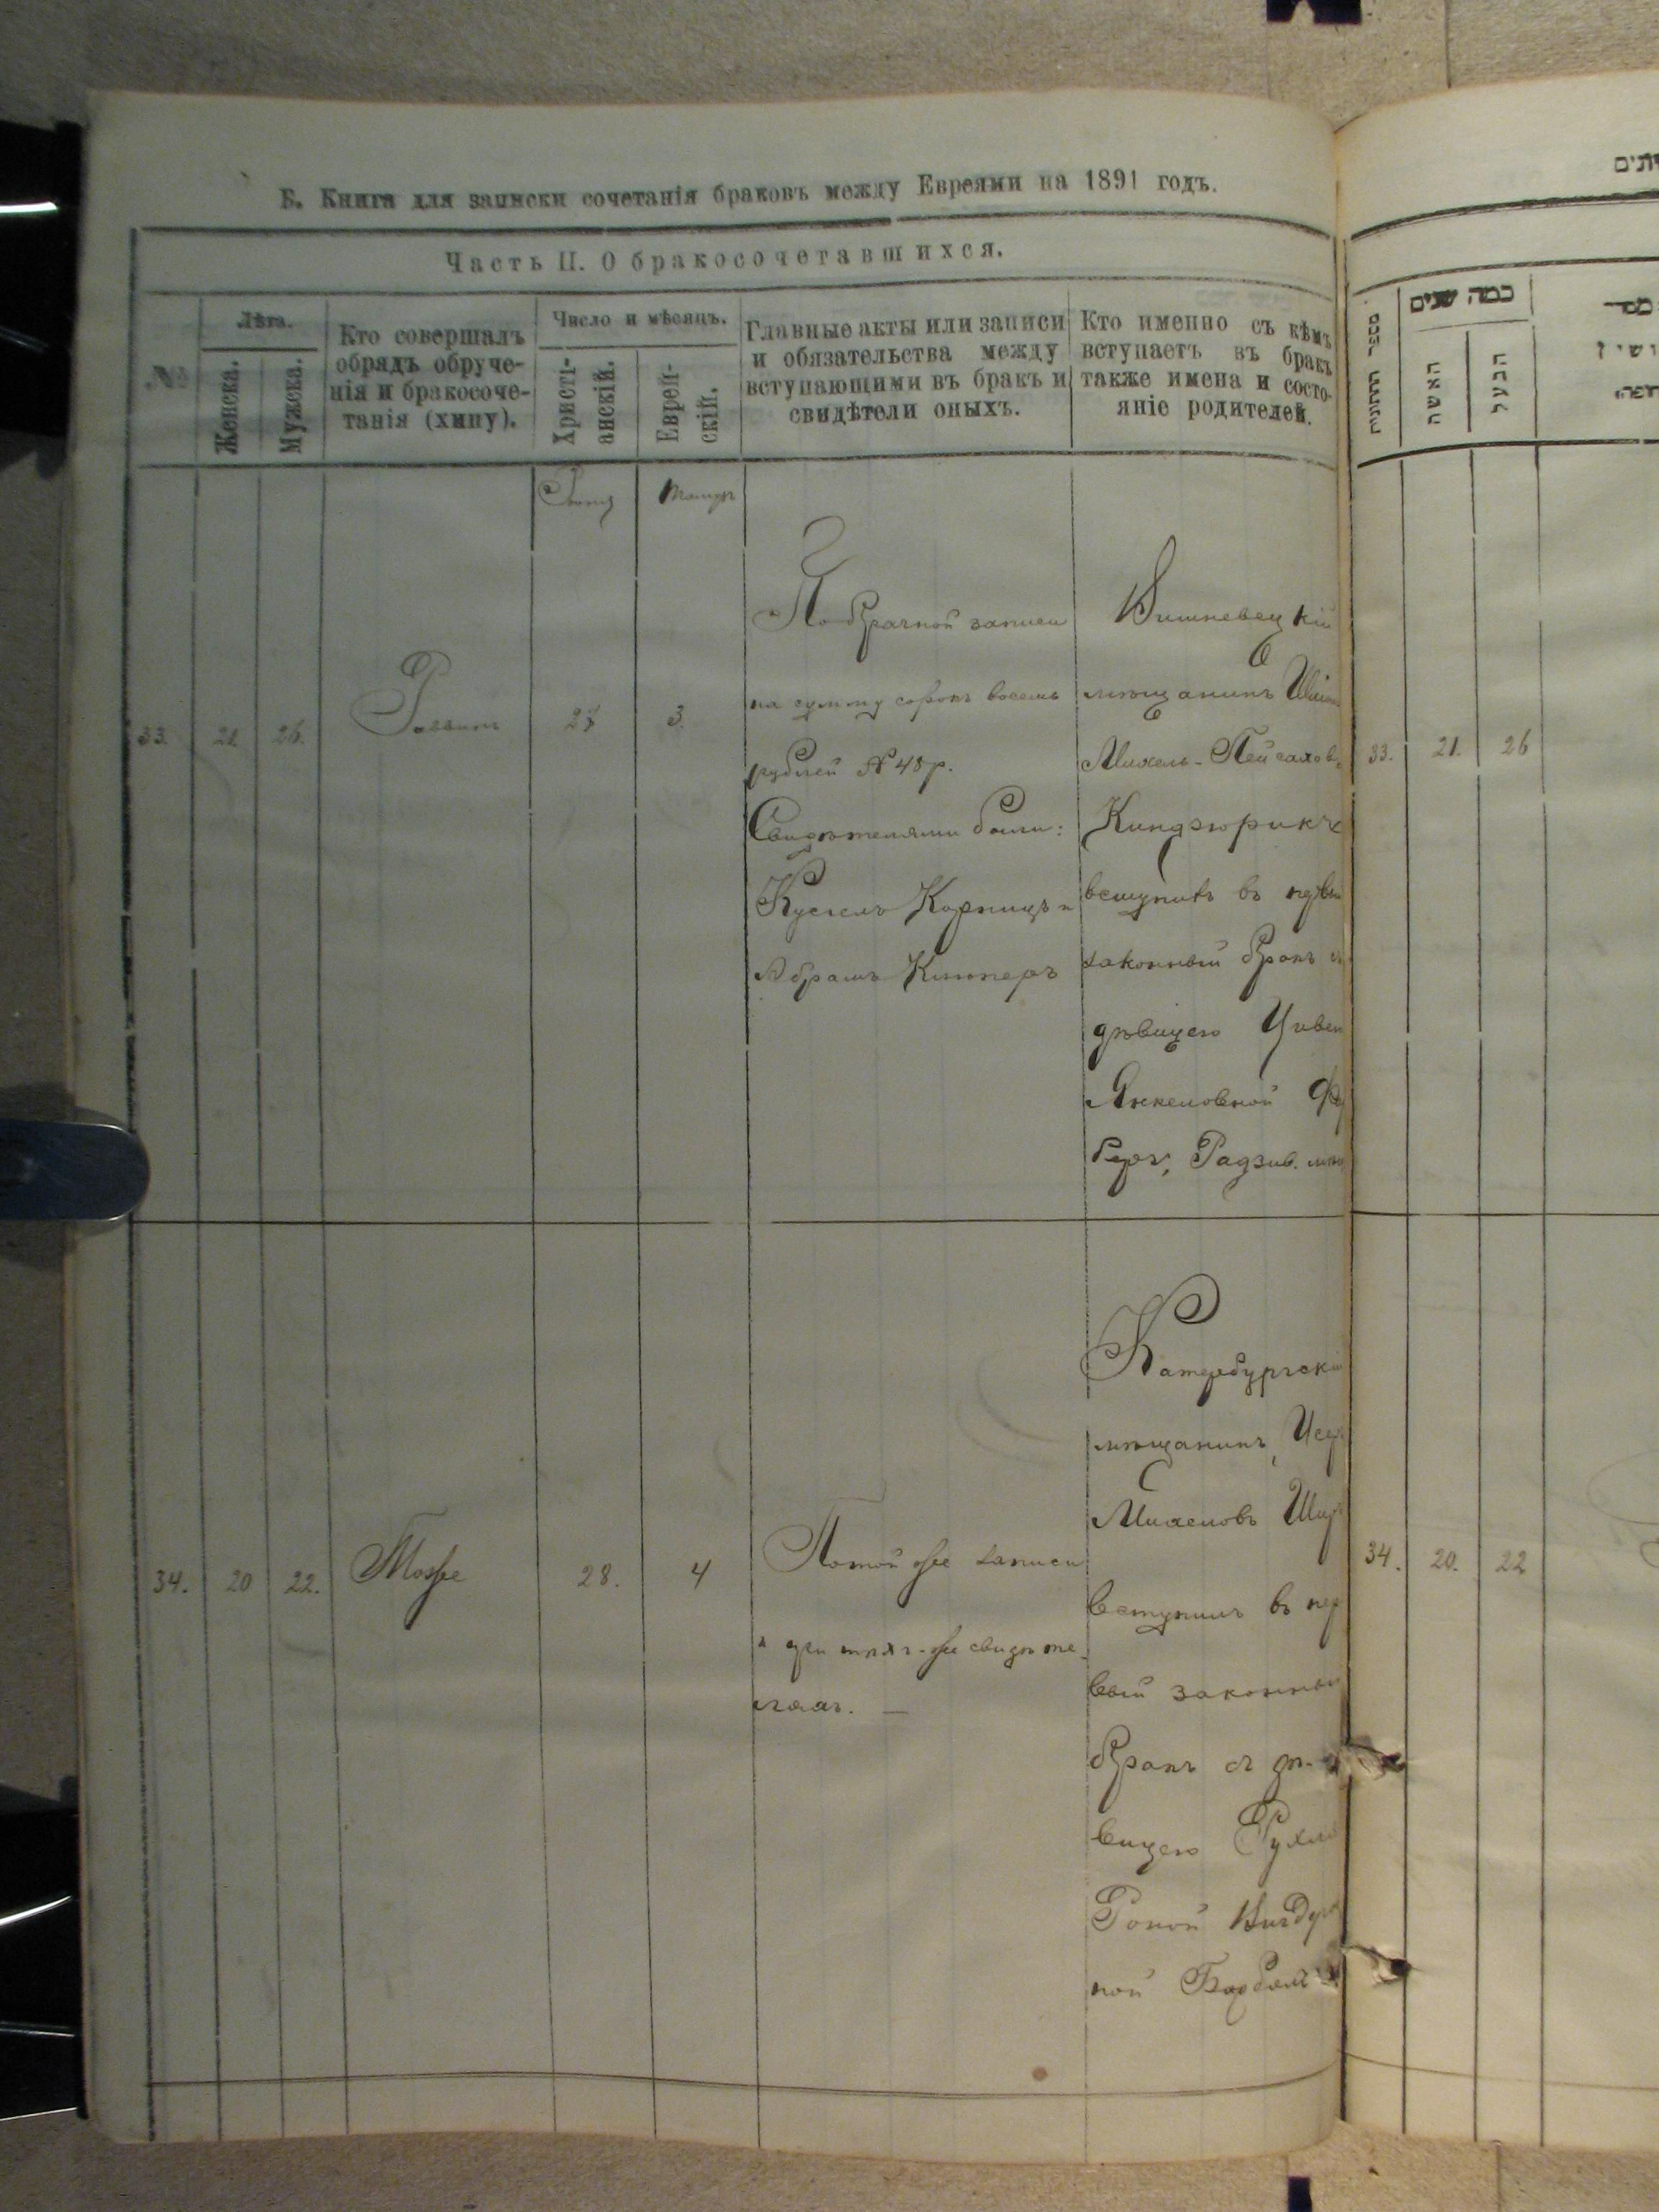 Б. Книга для записки сочетанія браковъ между Евреями на 1891 годъ.
Часть II. О бракосочетавшихся.
№
Лѣта.
Женска.
Мужска.
Кто совершалъ
обрядъ обруче-
нія и бракосоче-
танія (хипу).
Число и мѣсяцъ.
Христі-
анскій.
Еврей-
скій.
Главные акты или записи
и обязательства между
вступающими въ бракъ и
свидѣтели оныхъ.
Кто именно съ кѣмъ
вступаетъ въ бракъ
также имена и состо-
яніе родителей.
33.
21.
26.
Раввинъ
27
3.
По брачной записи
на сумму сорокъ восемь
рублей № 48 р.
Свидѣтелями были:
Кусель Корницъ и
Абрамъ Киммеръ
Вишневецкій
мѣщанинъ
Михель-Пейсахов
Киндзюрикъ
вступилъ въ
законный бракъ
дѣвицею
Янкеловной
Радзив.
34.
20
22.
Тотже
28.
4
По той же записи
и при тѣхъ-же свидѣте-
ляхъ. —
Катербургскій
мѣщанинъ
Михелевъ
вступилъ въ пер
вый законный
бракъ съ дѣ-
вицею Рухлей
ной
מספר החתנות
כמה שנים
האשה
הבעל
33.
21.
26
34.
20.
22